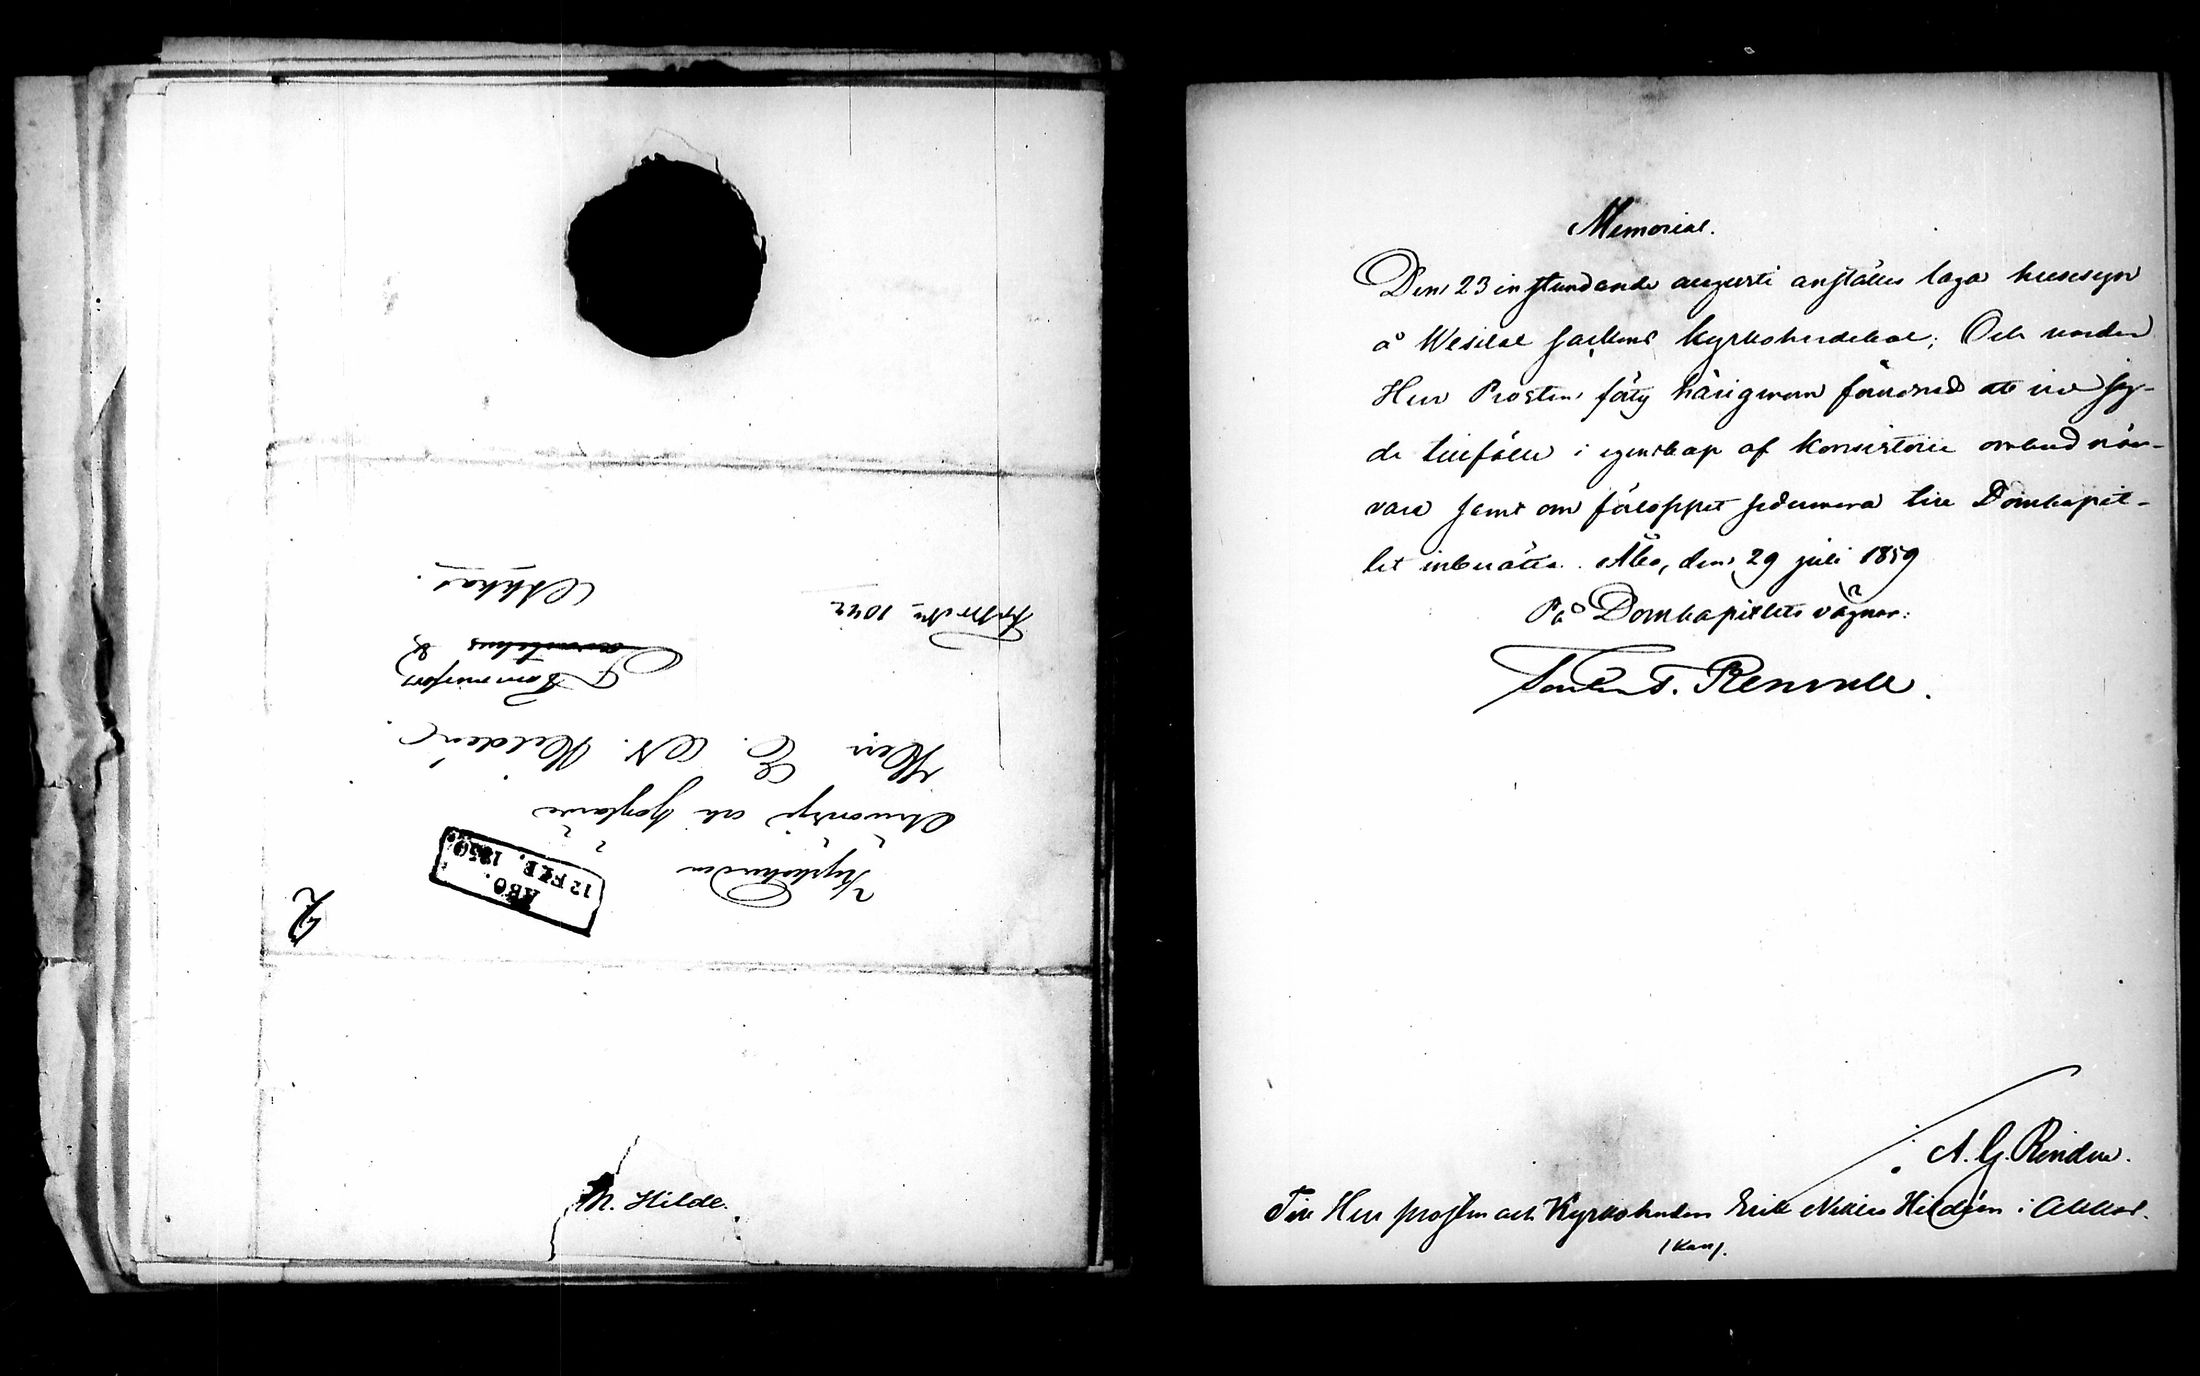 Kyrkoherden
Ärevördige och Höglärde
Herr E. N. Hildén.
Tammerfors &
Tavastehus
Akkas.
Tjenste No 1042
ÅBO.
12 FEB. 1859
2
M. Hilde.
Memorial.
Den 23 instundande augusti anställes laga husesyn
å Wesilax sockens kyrkoherdebol; Och varder
Herr Prosten förty härigenom förordnad att vid sag-
de tillfälle i egenskap af Konsistorii ombud när-
vara samt om förloppet sedermera till Domkapit-
let inberätta. Åbo, den 29 juli 1859
På Domkapitlets vägnar:
T. Renvall.
A. G. Rinden.
Till Herr prosten och Kyrkoherden Erik Niklas Hildén i Akkas.